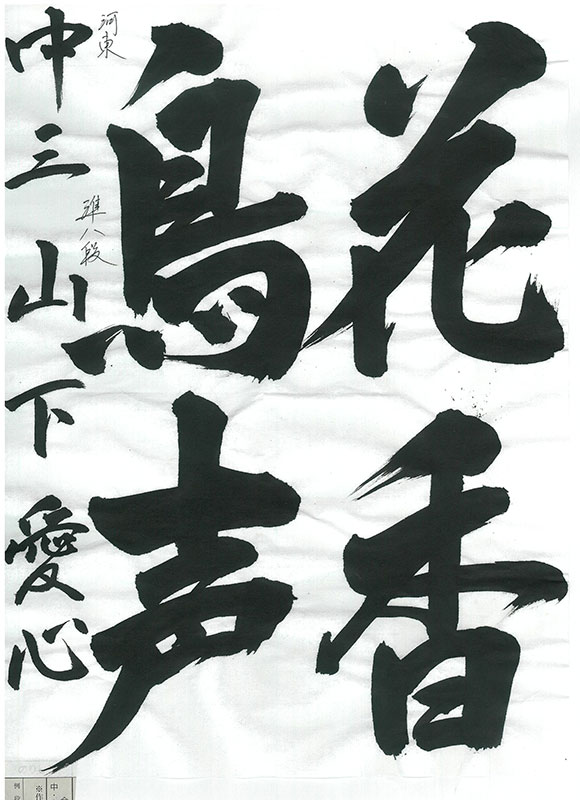 花香
鳥声
河東
準八段
中三山下愛心